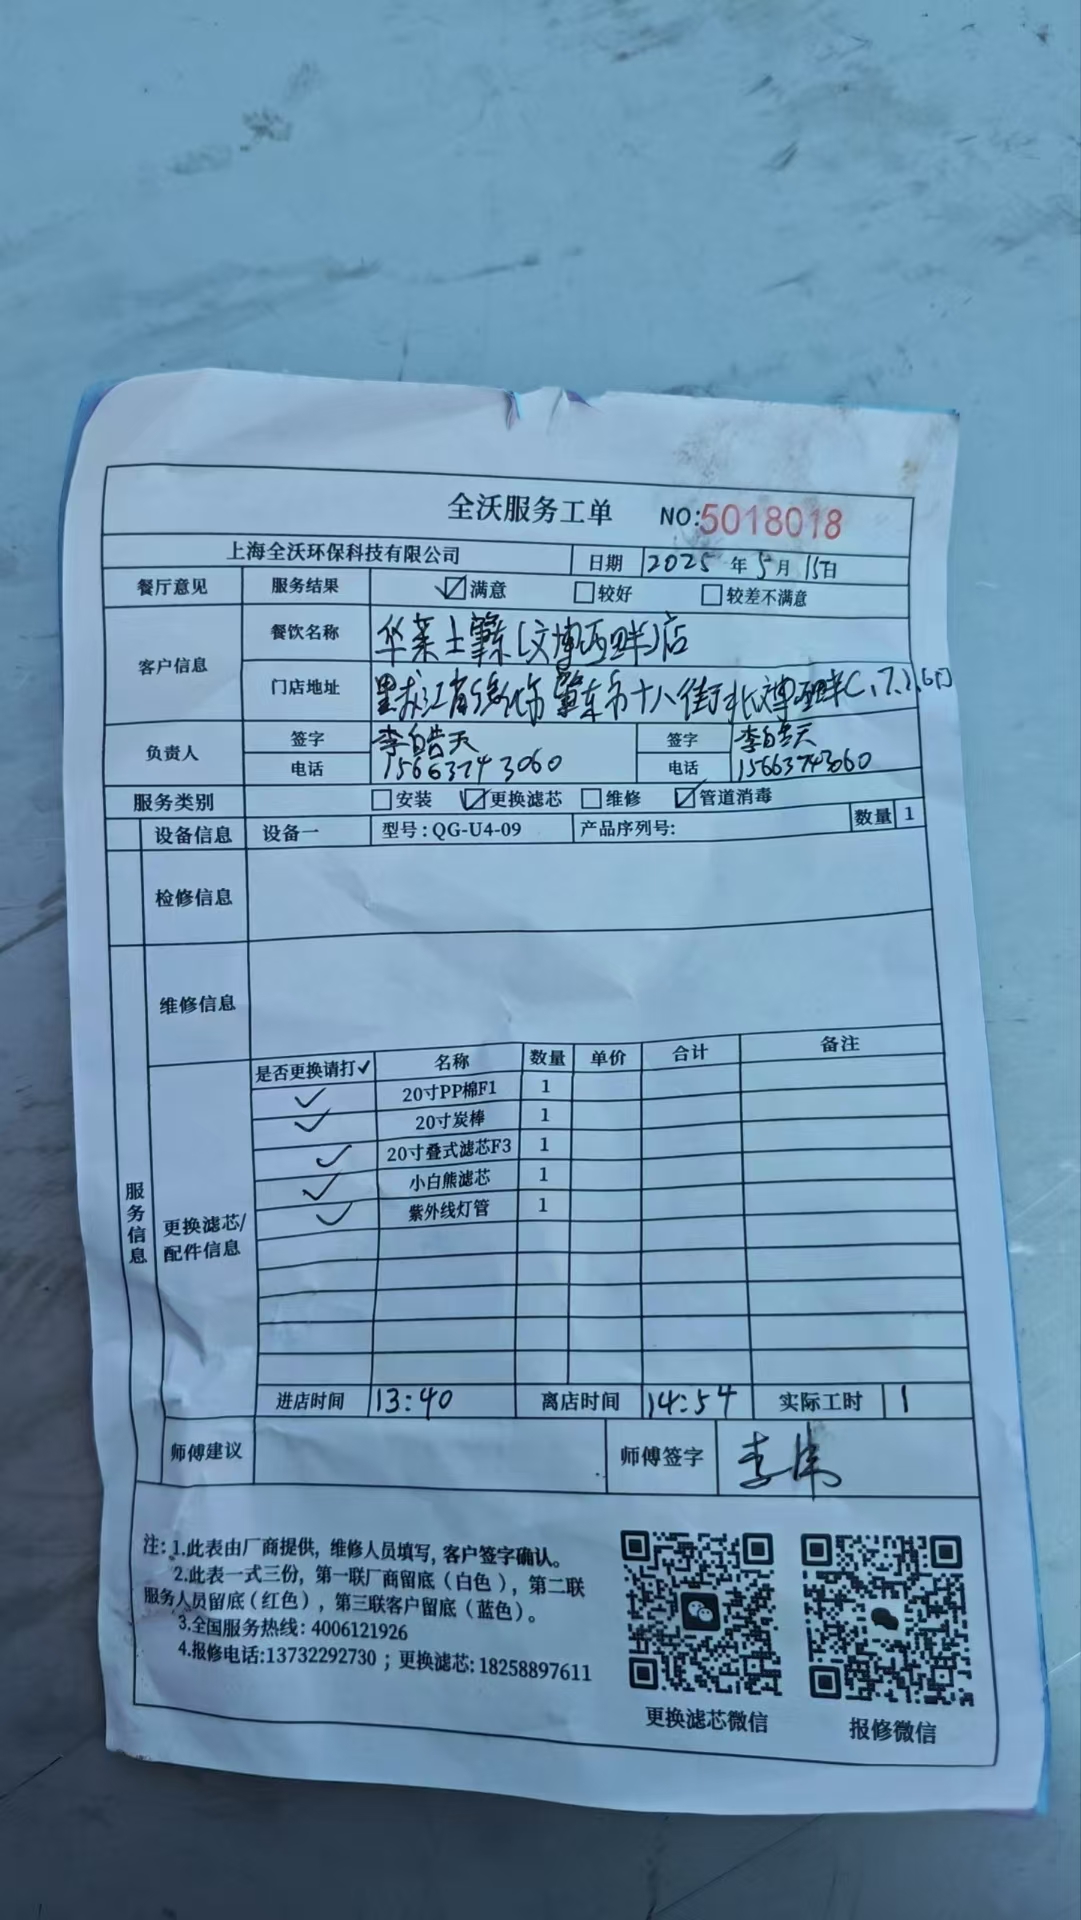 全沃服务工单 NO:5018018
上海全沃环保科技有限公司 日期 2025 年 5 月 15日
餐厅意见 服务结果 ☑满意 □较好 □较差不满意
客户信息 餐饮名称 华莱士肇东(文博西畔)店
门店地址 黑龙江省绥化市肇东市十八街北文博西畔C,7,
负责人 签字 李皓天 签字 李皓天
电话 15663743060 电话 15663743060
服务类别 □安装 ☑更换滤芯 □维修 ☑管道消毒
设备信息 设备一 型号:QG-U4-09 产品序列号: 数量 1
检修信息
维修信息
服务信息
更换滤芯/配件信息
是否更换请打✓ 名称 数量 单价 合计 备注
✓ 20寸PP棉F1 1
✓ 20寸炭棒 1
✓ 20寸叠式滤芯F3 1
✓ 小白熊滤芯 1
✓ 紫外线灯管 1
进店时间 13:40 离店时间 14:54 实际工时 1
师傅建议 师傅签字 李伟
注:1.此表由厂商提供, 维修人员填写, 客户签字确认。
2.此表一式三份, 第一联厂商留底(白色), 第二联
服务人员留底(红色), 第三联客户留底(蓝色)。
3.全国服务热线: 4006121926
4.报修电话:13732292730 ; 更换滤芯: 18258897611
更换滤芯微信 报修微信